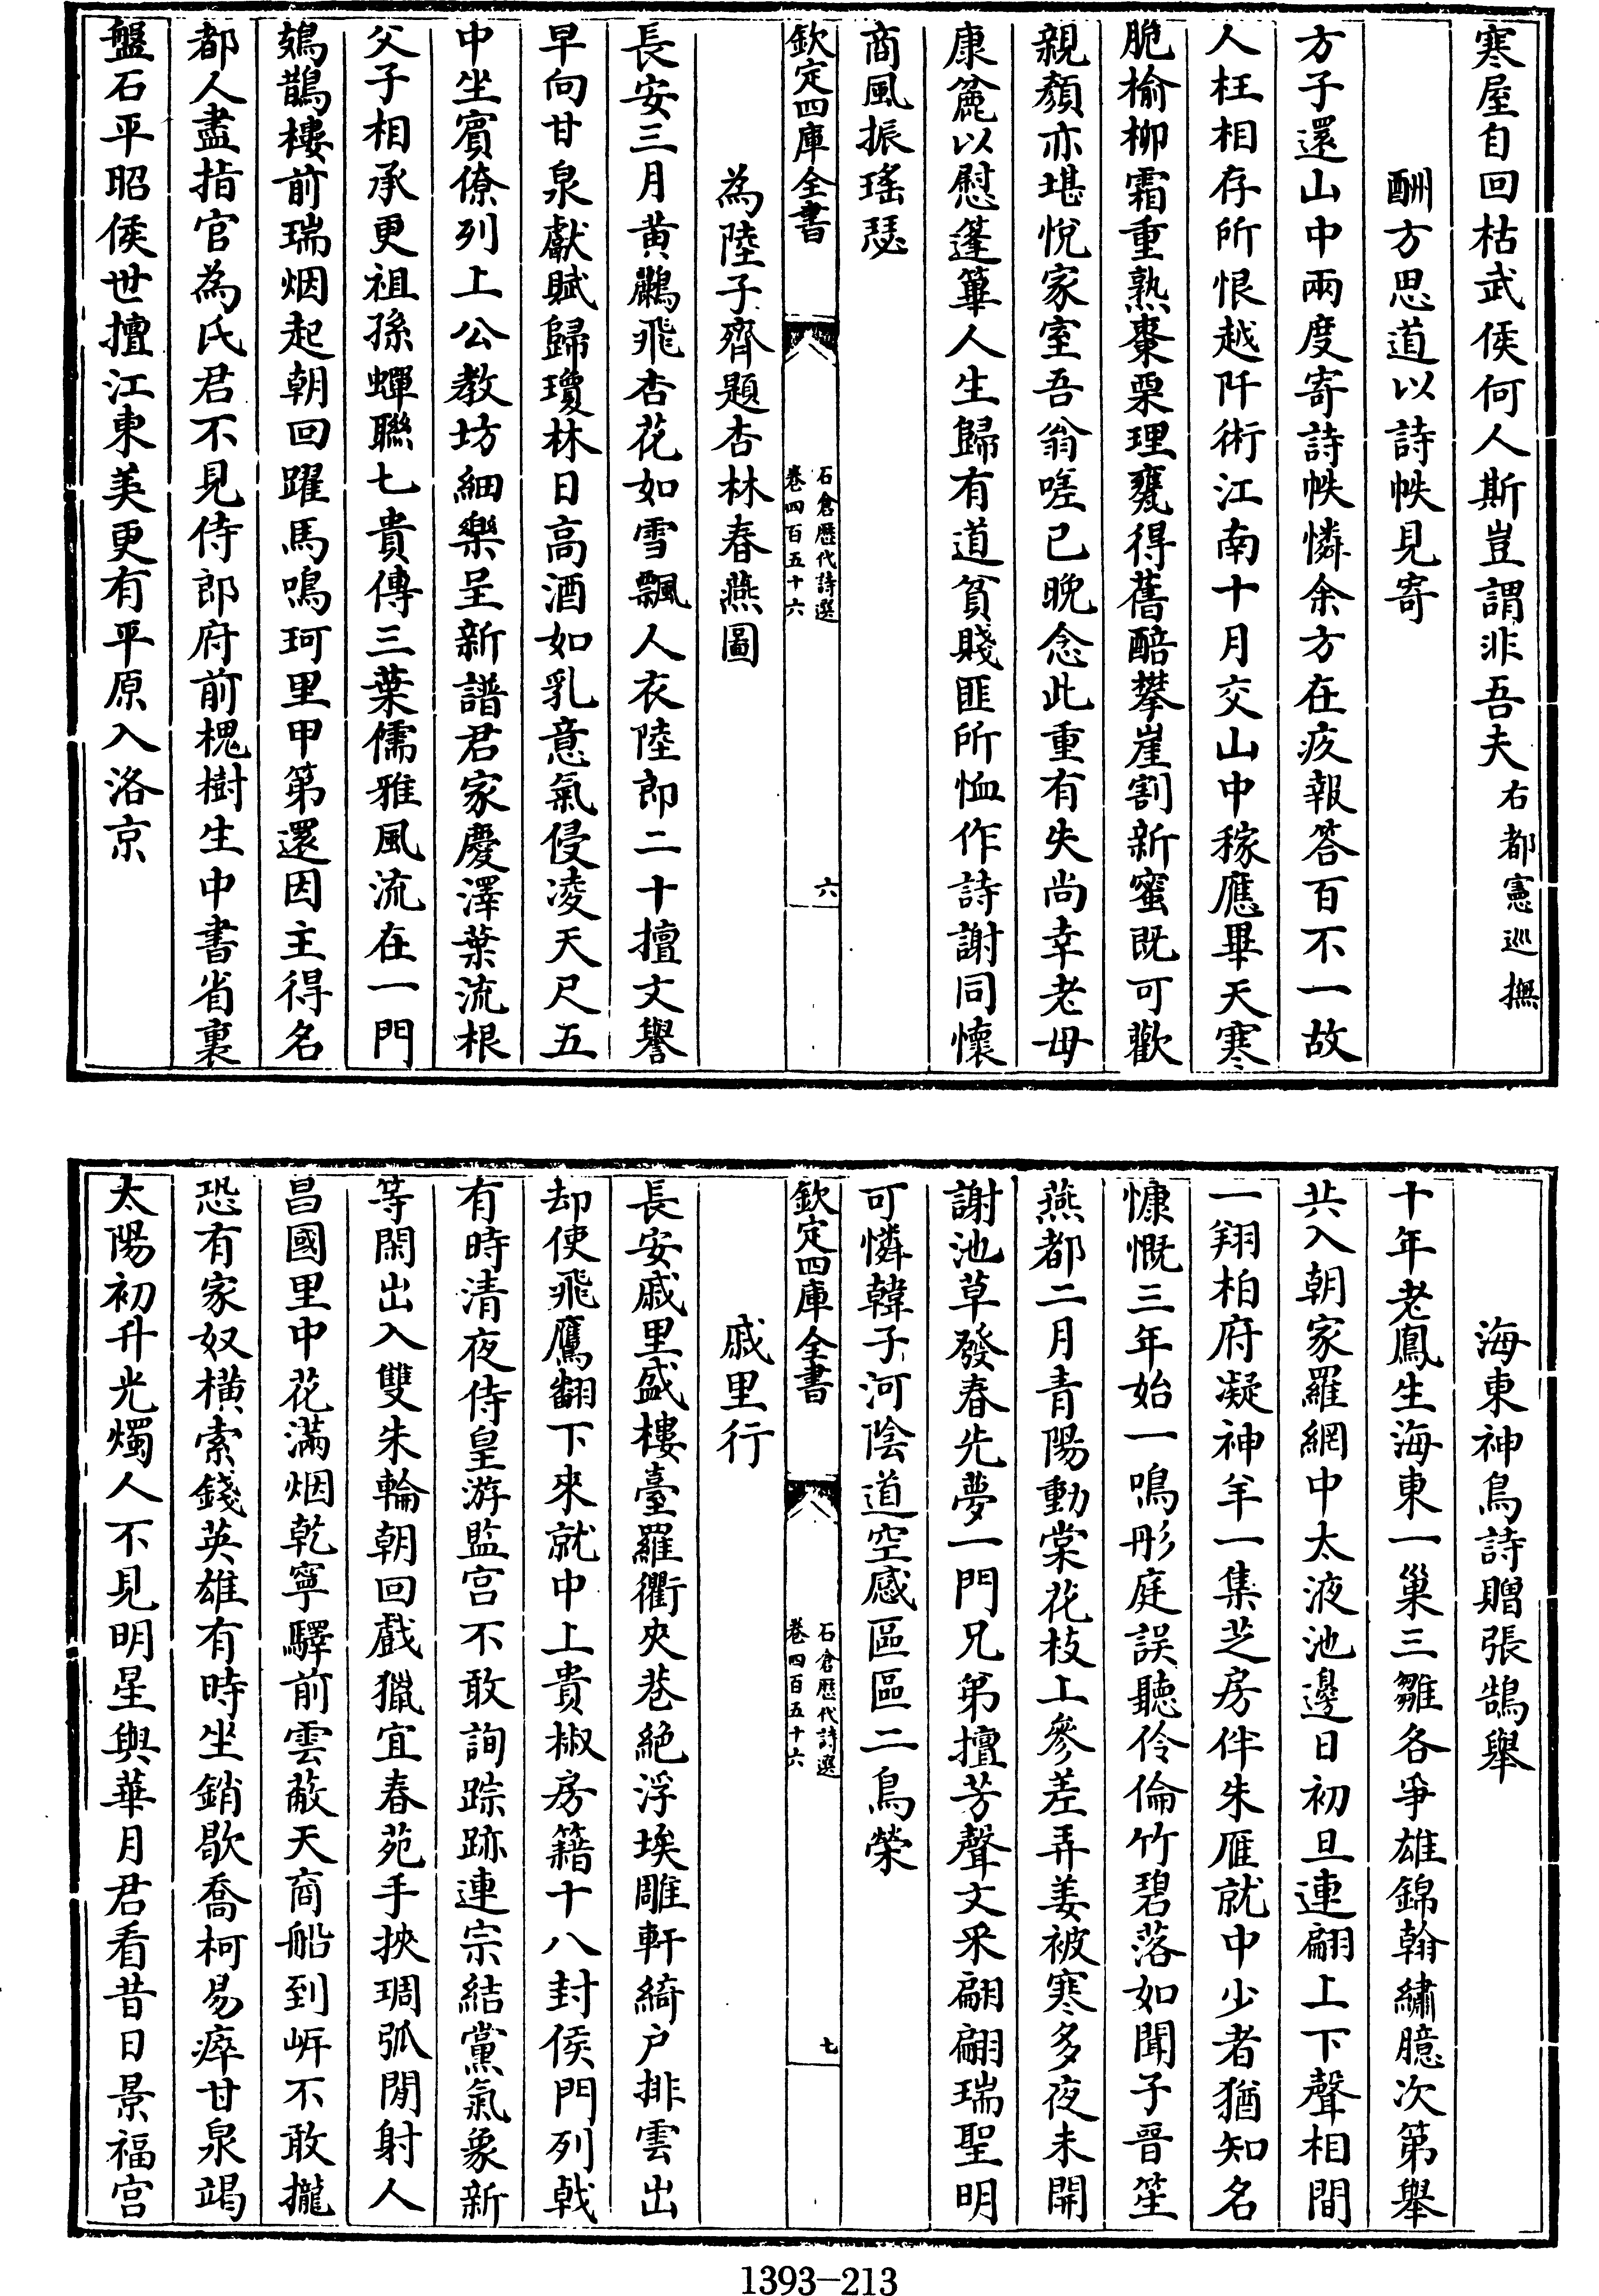 寒屋自回枯武侯何人斯豈謂非吾夫右都憲巡撫
酬方思道以詩帙見寄
方子還山中兩度寄詩帙憐余方在疚報答百不一故
人枉相存所恨越阡術江南十月交山中稼應畢天寒
脆榆柳霜重熟棗栗理甕得舊醅攀崖割新蜜既可歡
親顏亦堪悅家室吾翁嗟已晚念此重有失尚幸老母
康簏以慰蓬蓽人生歸有道貧賤匪所恤作詩謝同懷
商風振瑤瑟
欽定四庫全書
石倉歷代詩選
卷四百五十六
六
為陸子齊題杏林春燕圖
長安三月黃鸝飛杏花如雪飄人衣陸郎二十擅文譽
早向甘泉獻賦歸瓊林日高酒如乳意氣侵凌天尺五
中坐賓僚列上公教坊細樂呈新譜君家慶澤葉流根
父子相承更祖孫蟬聯七貴傳三葉儒雅風流在一門
鳷鵲樓前瑞烟起朝回躍馬鳴珂里甲第還因主得名
都人盡指官為氏君不見侍郎府前槐樹生中書省裏
盤石平昭侯世擅江東美更有平原入洛京
海東神鳥詩贈張鵠舉
十年老鳳生海東一巢三雛各爭雄錦翰繡臆次第舉
共入朝家羅網中太液池邊日初旦連翩上下聲相間
一翔柏府凝神羊一集芝房伴朱雁就中少者猶知名
慷慨三年始一鳴彤庭誤聽伶倫竹碧落如聞子晉笙
燕都二月青陽動棠花枝上參差弄姜被寒多夜未開
謝池草發春先夢一門兄弟擅芳聲文采翩翩瑞聖明
可憐韓子河陰道空感區區二鳥榮
欽定四庫全書
石倉歷代詩選
卷四百五十六
七
戚里行
長安戚里盛樓臺羅衢夾巷絕浮埃雕軒綺户排雲出
却使飛鷹翻下來就中上貴椒房籍十八封侯門列戟
有時清夜侍皇游監宮不敢詢踪跡連宗結黨氣象新
等閑出入雙朱輪朝回戲獵宜春苑手挾琱弧閒射人
昌國里中花滿烟乾寧驛前雲蔽天商船到岍不敢攏
恐有家奴橫索錢英雄有時坐銷歇喬柯易瘁甘泉竭
太陽初升光燭人不見明星與華月君看昔日景福宮
1393—213